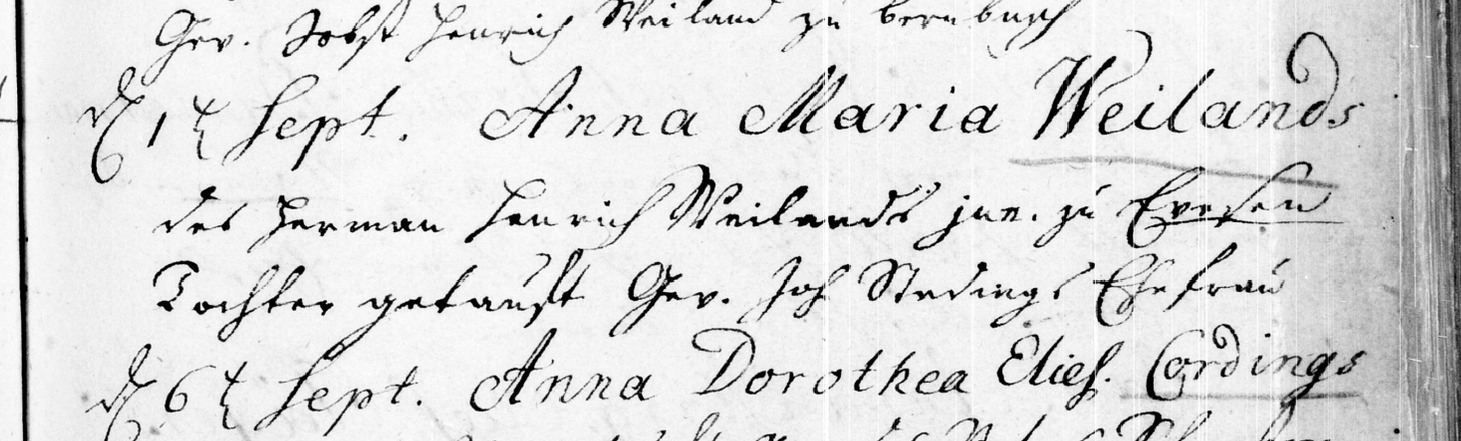 Gev. Jobst Henrich Weiland zu bernbusch
d. 1t Sept. Anna Maria Weilands
des Herman Henrich Weilands jun. zu Evesen
Tochter getauft Gev. Joh Stedings Ehefrau
d. 6t Sept. Anna Dorothea Elies. Cordings